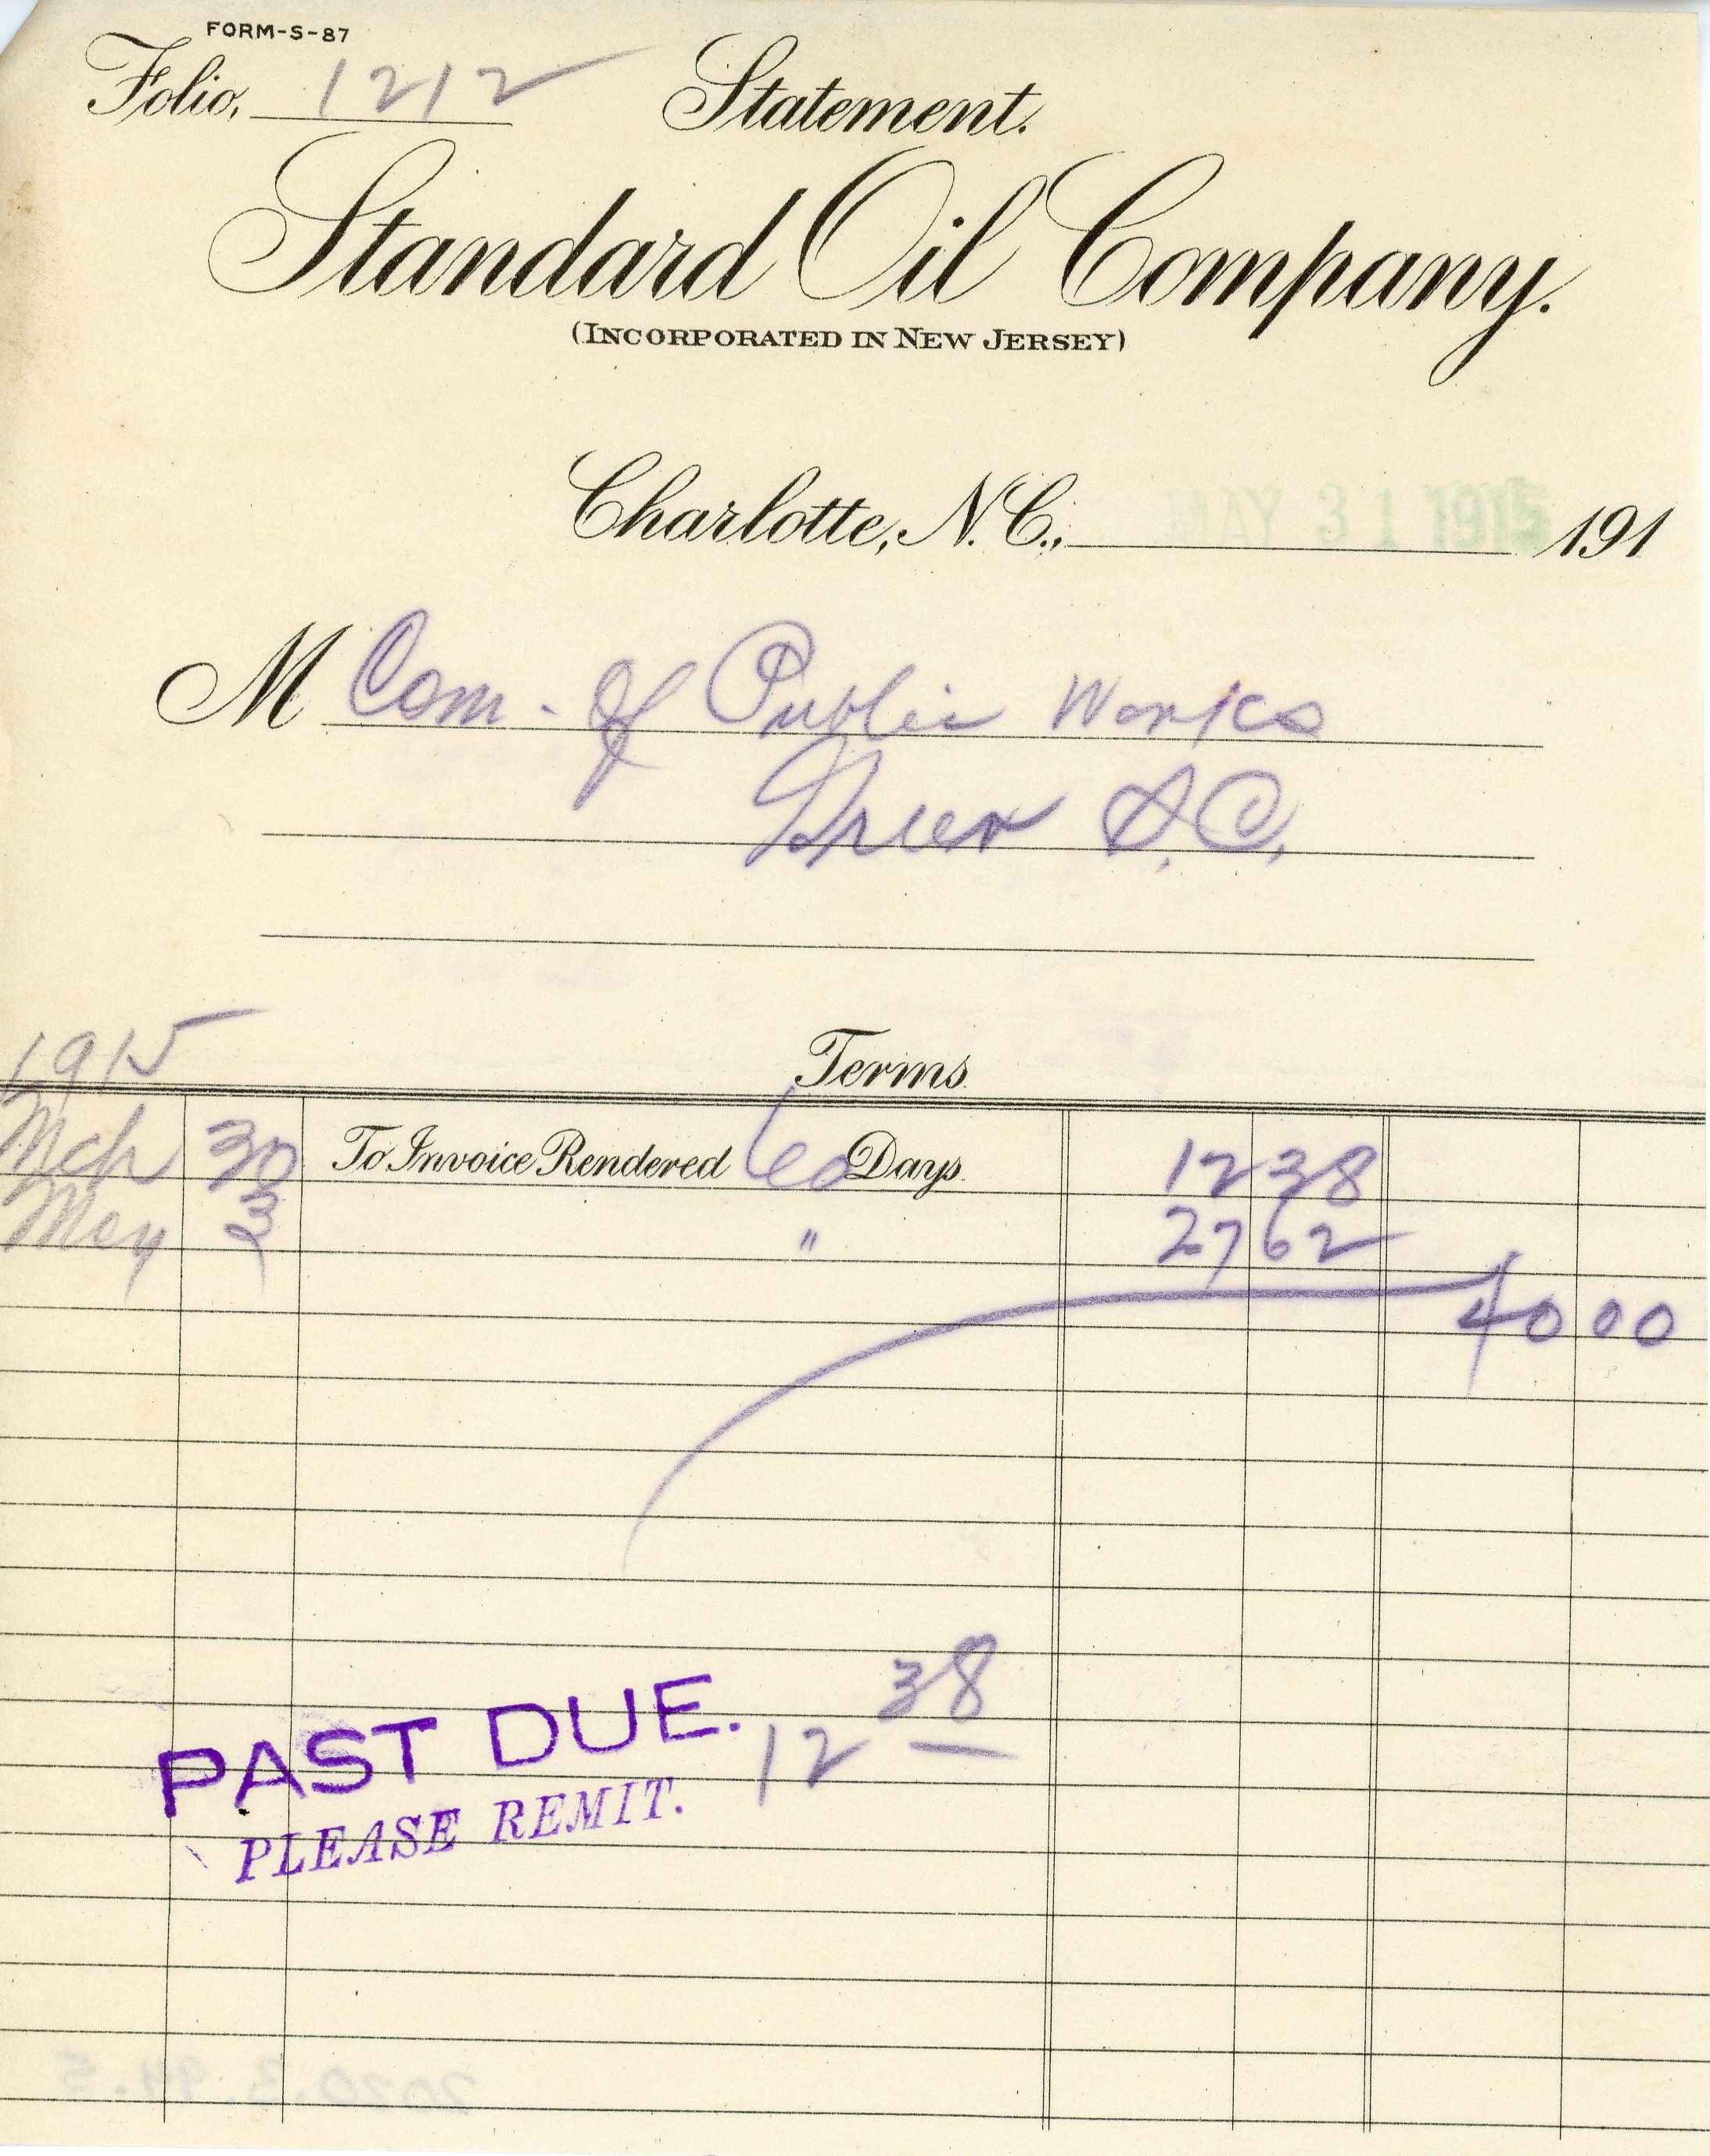 FORM-S-87
Folio, 1212 Statement.
Standard Oil Company.
(INCORPORATED IN NEW JERSEY)
Charlotte, N.C., MAY 31 1915 191
M Com. of Public Works
Greer S.C.
1915
Terms
Mch 30 To Invoice Rendered 60 Days 12 38
May 3 " 27 62
40 00
PAST DUE. 12 38
PLEASE REMIT.
2020.3.94.5